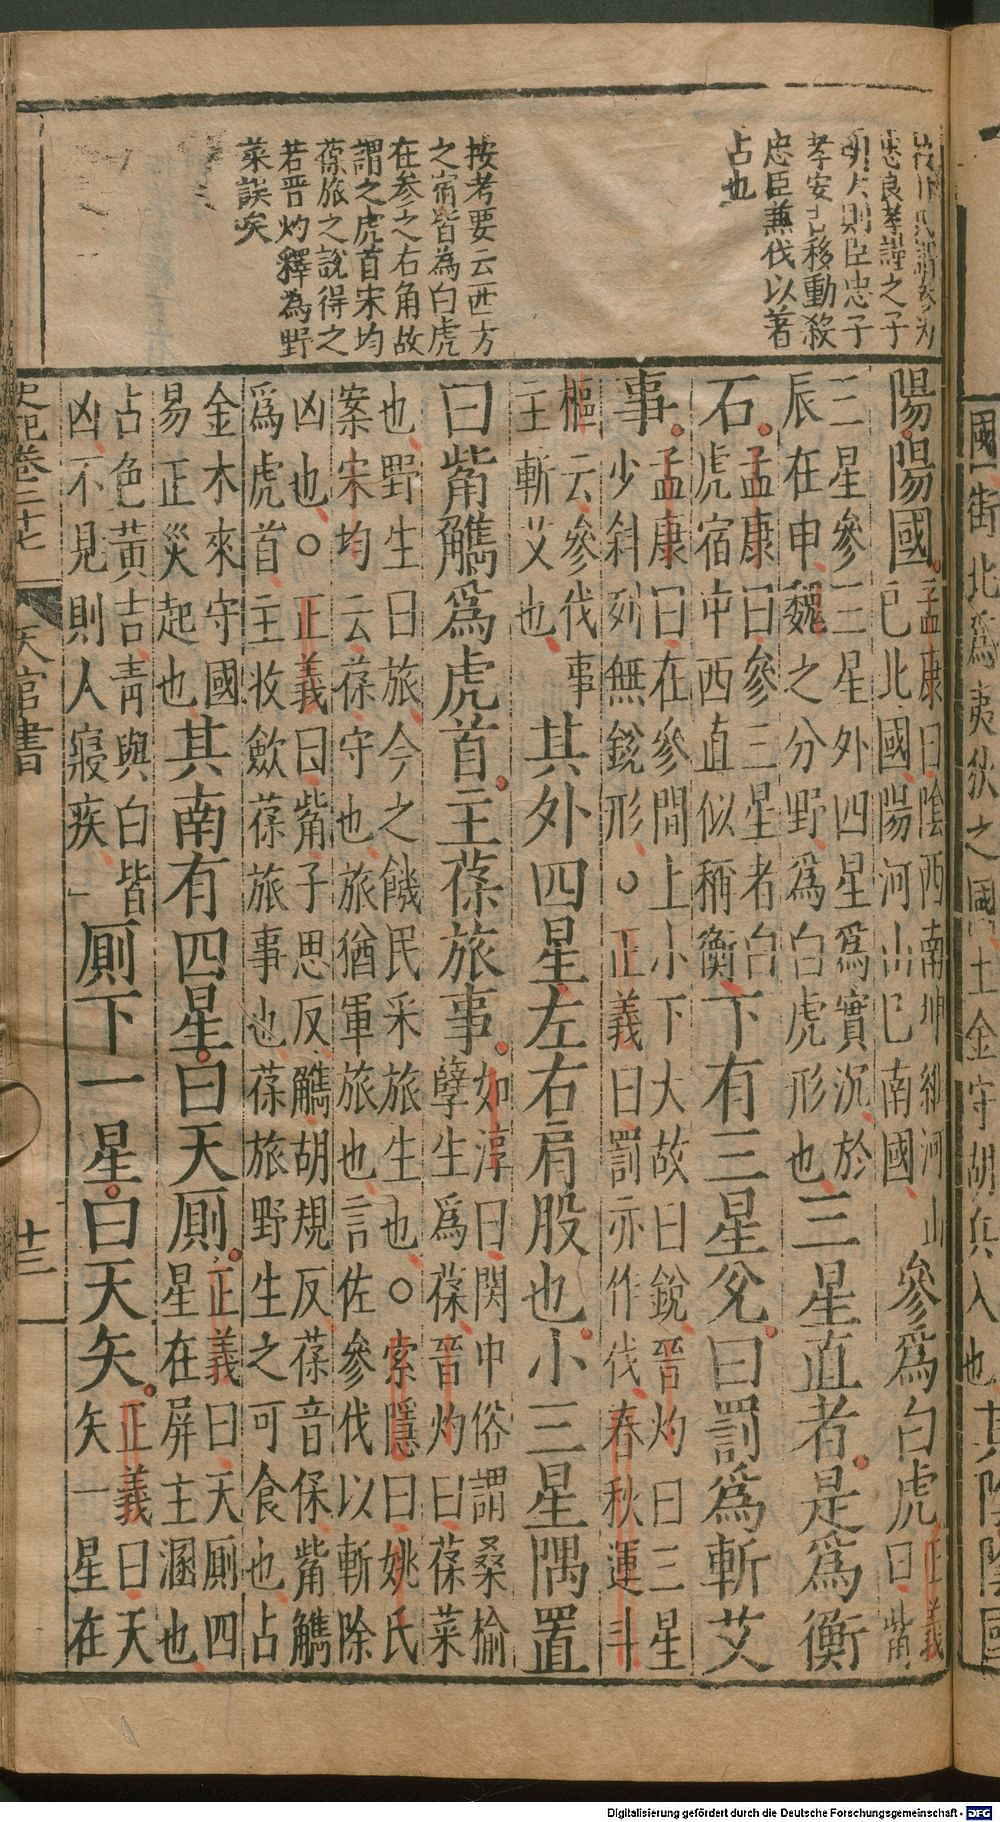 國街北爲夷狄之國土金守胡兵入也其陰陰國
忠良孝謹之子
明大則臣忠子
孝安吉移動殺
忠臣兼伐以著
占也
按考要云西方
之宿皆為白虎
在參之右角故
謂之虎首宋均
葆旅之說得之
若晋灼釋為野
菜誤矣
陽陽國孟康曰陰西南坤維河山
已北國陽河山已南國參爲白虎正義
曰觜
三星參三星外四星爲實沉於
辰在申魏之分野爲白虎形也三星直者是爲衡
石孟康曰參三星者白
虎宿中西直似稱衡下有三星兌曰罰爲斬艾
事孟康曰在參間上小下大故曰銳晉灼曰三星
少斜列無銳形○正義曰罰亦作伐春秋運斗
樞云參伐事
主斬艾也其外四星左右肩股也小三星隅置
曰觜觿爲虎首主葆旅事如淳曰関中俗謂桑榆
孽生爲葆晉灼曰葆菜
也野生曰旅今之饑民采旅生也○索隱曰姚氏
案宋均云葆守也旅猶軍旅也言佐參伐以斬除
凶也○正義曰觜子思反觿胡規反葆音保觜觿
爲虎首主收斂葆旅事也葆旅野生之可食也占
金木來守國
易正災起也其南有四星曰天厠正義曰天厠四
星在屏主溷也
占色黄吉青與白皆
凶不見則人寢疾厠下一星曰天矢正義曰天
矢一星在
史記卷二十七
天官書
十三
Digitalisierung gefördert durch die Deutsche Forschungsgemeinschaft - DFG